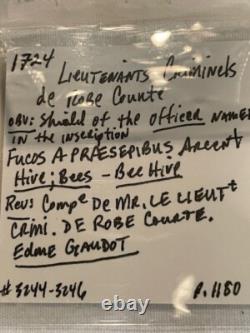 1724
LIEUTENANTS CRIMINELS
de ROBE COURTE
OBV: Shield of the officer NAMED
IN the inscription
FUCOS A PRÆSEPIBUS ARCENT
Hive; Bees - Bee Hive
Rev: Compe DE MR. LE LIEUTt
CRIMI. DE ROBE COURTE.
Edme GAUDOT
#3244-3246 P. 1180
ebay